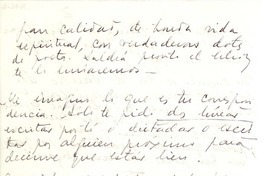 gran calidad, de honda vida
espiritual, con verdaderas dots
de poeta. Saldrá pronto el libro y
te lo enviaremos —
Me imagino lo que es tu correspon
dencia. Solo te pido dos líneas
escritas por tí o dictadas o escri
tas por alguien próximo para
decirme que estás bien.